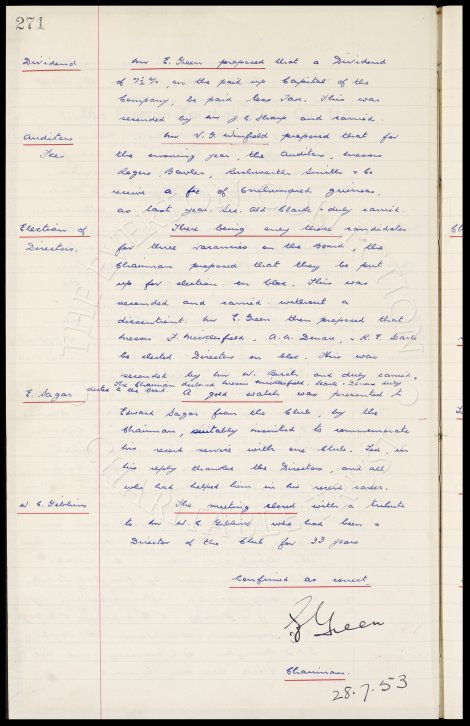 271
Dividend
Mr E. Green proposed that a Dividend
of 7½%, on the paid up Capital of the
Company, be paid less Tax. This was
seconded by Mr J.C. Sharp and carried.
Auditors
Fees
Mr V.G. Wingfield proposed that for
the ensuing year, the Auditors, Messrs
Rogers, Bowler, Rushworth Smith & Co
receive a fee of One hundred guineas
as last year. Sec. Ald Clarke & duly carried.
Election of
Directors.
There being only three candidates
for three vacancies on the Board, the
Chairman proposed that they be put
up for election en bloc. This was
seconded and carried without a
dissentient. Mr E. Green then proposed that
Messrs F. Micklesfield, A.A. & R.E. Searle
be elected Directors en bloc. This was
seconded by Mr W. and duly carried.
The Chairman declared Messrs Micklesfield, Searle & duly
elected to the Board.
E. Sagar
A gold watch was presented to
Edward Sagar from the Club, by the
Chairman, suitably inscribed to commemorate
his record service with one Club. Ted, in
his reply thanked the Directors, and all
who had helped him in his record career.
W.C. Gibbins
The meeting closed with a tribute
to Mr W.C. Gibbins who had been a
Director of the Club for 33 years
Confirmed as correct.
Green
Chairman.
28.7.53